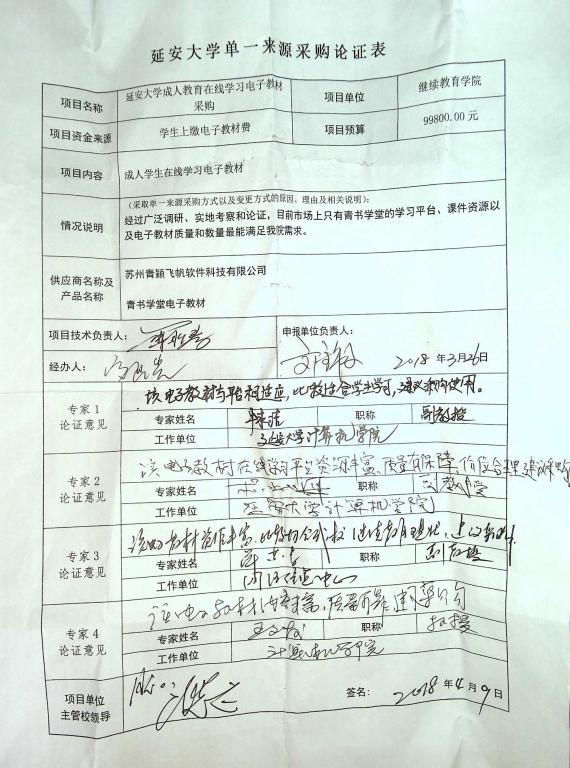 延安大学单一来源采购论证表
项目名称
延安大学成人教育在线学习电子教材
采购
项目单位
继续教育学院
项目资金来源
学生上缴电子教材费
项目预算
99800.00 元
项目内容
成人学生在线学习电子教材
情况说明
(采取单一来源采购方式以及变更方式的原因、理由及相关说明):
经过广泛调研、实地考察和论证，目前市场上只有青书学堂的学习平台、课件资源以
及电子教材质量和数量最能满足我院需求。
供应商名称及
产品名称
苏州青颖飞帆软件科技有限公司
青书学堂电子教材
项目技术负责人:
申报单位负责人:
经办人:
2018 年 3月 26日
专家 1
论证意见
该电子教材与平台相适应，比较适合学生学习，建议采购使用。
专家姓名
职称
副教授
工作单位
延安大学计算机学院
专家 2
论证意见
该电子教材在线学习平台资源丰富，质量有保障，价位合理，建议采购
专家姓名
职称
副教授
工作单位
延安大学计算机学院
专家 3
论证意见
专家姓名
职称
副教授
工作单位
中心
专家 4
论证意见
该电子教材内容丰富，质量可靠，
专家姓名
职称
教授
工作单位
计算机学院
项目单位
主管校领导
签名:
2018 年 4 月 9 日